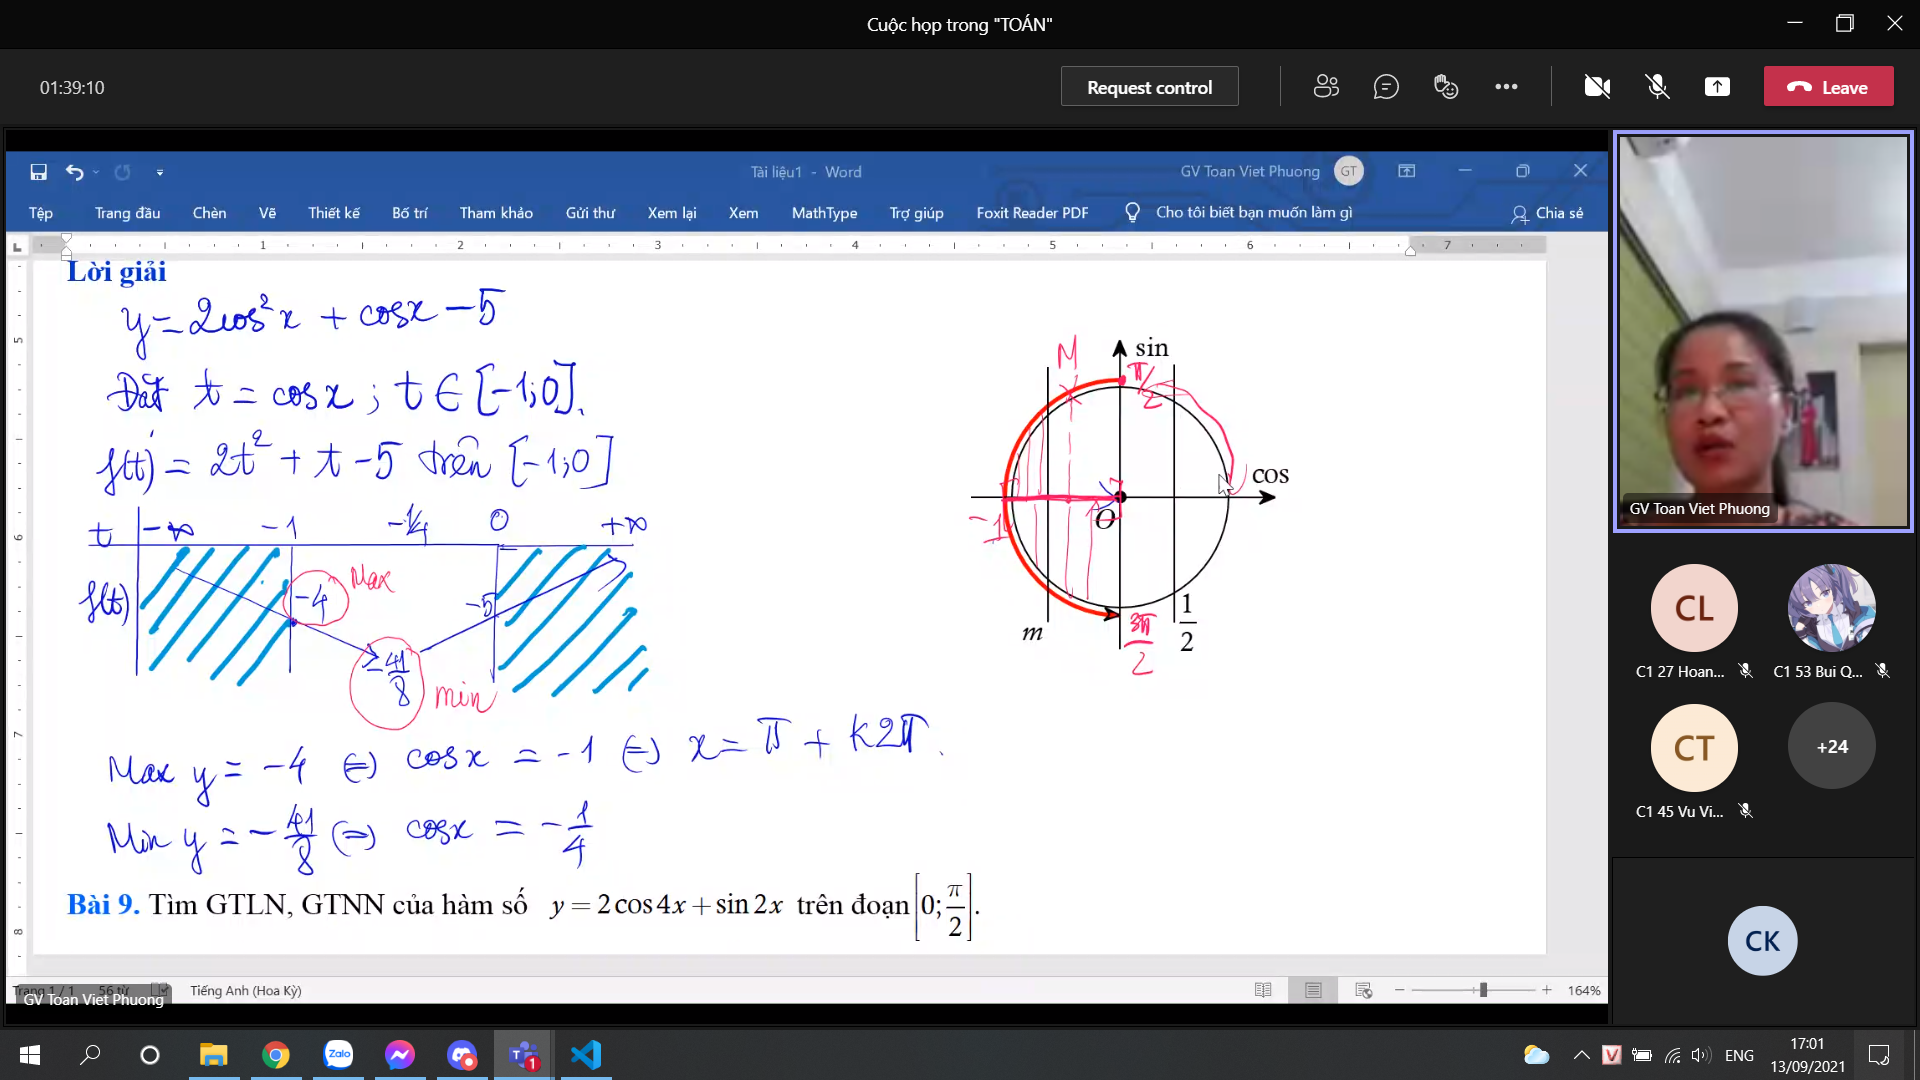 Cuộc họp trong "TOÁN"
01:39:10
Request control
Leave
Tài liệu1 - Word
GV Toan Viet Phuong
GT
Tệp Trang đầu Chèn Vẽ Thiết kế Bố trí Tham khảo Gửi thư Xem lại Xem MathType Trợ giúp Foxit Reader PDF Cho tôi biết bạn muốn làm gì Chia sẻ
1 2 3 4 5 6 7
Lời giải
y = 2cos²x + cosx - 5
Đặt t = cosx ; t ∈ [-1;0].
f(t) = 2t² + t - 5 trên [-1;0]
t -∞ -1 -1/4 0 +∞
f(t) -4 Max -5
-41/8 min
Max y = -4 (=) cosx = -1 (=) x = π + k2π.
Min y = -41/8 (=) cosx = -1/4
M sin
π/2
cos
-1 O
m 3π/2 1/2
Bài 9. Tìm GTLN, GTNN của hàm số y = 2cos4x + sin2x trên đoạn [0; π/2].
5
6
7
8
Trang 1 / 1 56 từ Tiếng Anh (Hoa Kỳ)
164%
GV Toan Viet Phuong
GV Toan Viet Phuong
CL
C1 27 Hoan...
C1 53 Bui Q...
CT
C1 45 Vu Vi...
+24
CK
Zalo
1
V
ENG
17:01
13/09/2021